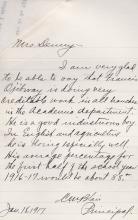 Mrs Denny,
I am very glad
to be able to say that Francis
Ordway is doing very
creditable work in all branches
in the Academic department.
He is a good industrious boy.
In English and agriculture
he is doing especially well.
His average percentage for
the first half of the school year
1916-17 would be about 88.
Principal.
Jan. 18, 1917.